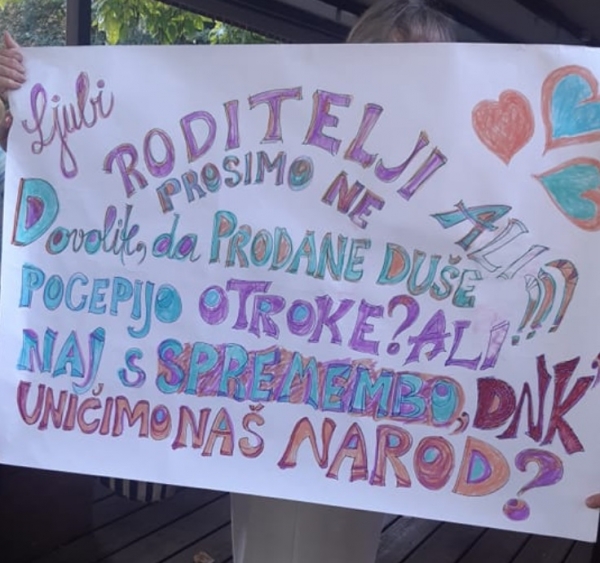 Ljubi
RODITELJI
PROSIMO NE
Dovolite, da PRODANE DUŠE ALI!!!
POCEPIJO OTROKE? ALI
NAJ S SPREMEMBO, DNK'
UNIČIMO NAŠ NAROD?